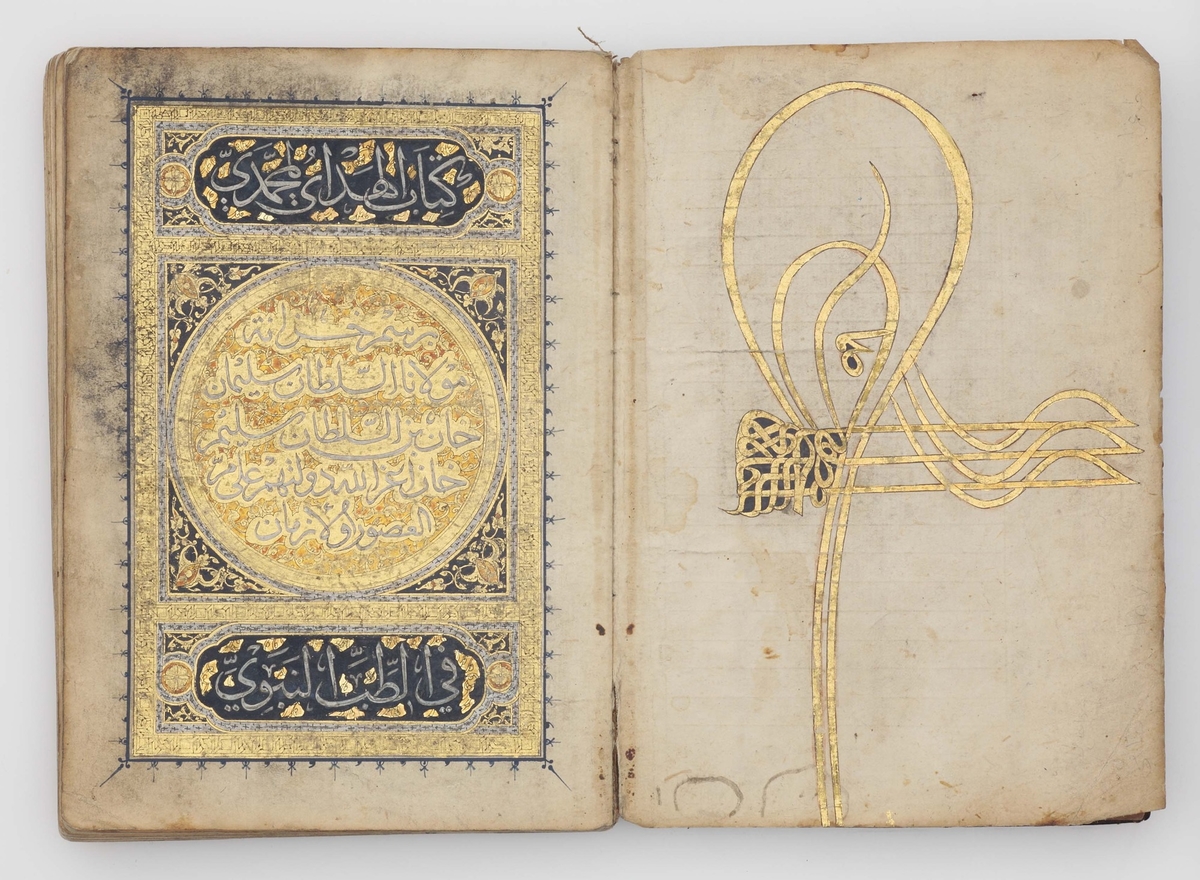 كتاب الهدي المحمدي
برسم خزانة
مولانا السلطان سليمان
خان بن السلطان سليم
خان اعز الله دولتهم على مر
العصور والازمان
في الطب النبوي